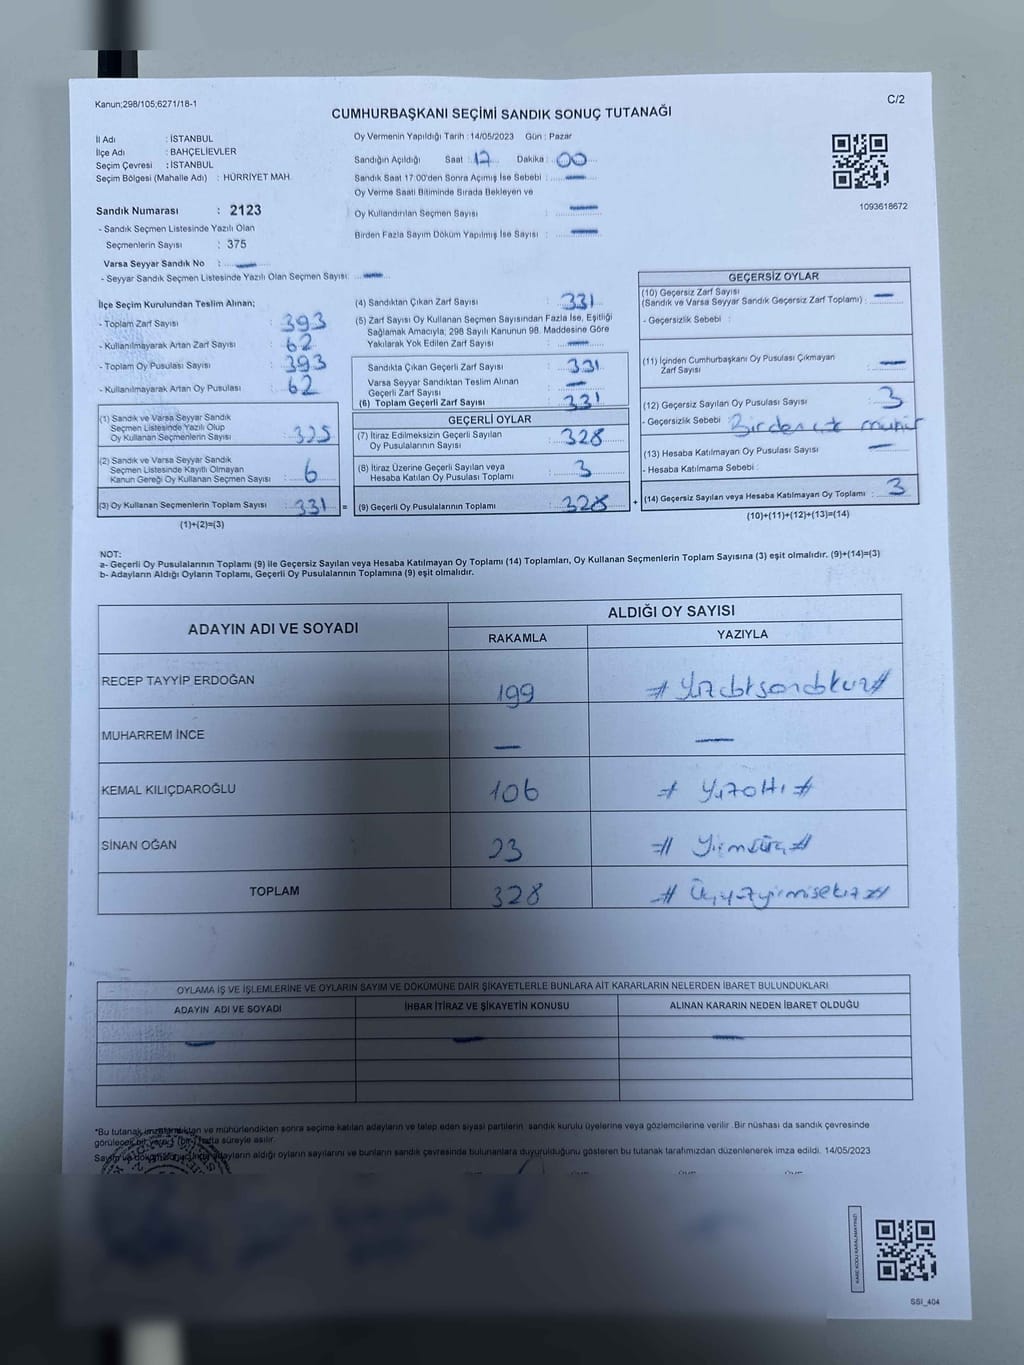 Kanun;298/105;6271/18-1
C/2
CUMHURBAŞKANI SEÇİMİ SANDIK SONUÇ TUTANAĞI
İl Adı : İSTANBUL
İlçe Adı : BAHÇELİEVLER
Seçim Çevresi : İSTANBUL
Seçim Bölgesi (Mahalle Adı) : HÜRRİYET MAH.
Sandık Numarası : 2123
- Sandık Seçmen Listesinde Yazılı Olan
Seçmenlerin Sayısı : 375
Varsa Seyyar Sandık No : —
- Seyyar Sandık Seçmen Listesinde Yazılı Olan Seçmen Sayısı: —
Oy Vermenin Yapıldığı Tarih : 14/05/2023 Gün : Pazar
Sandığın Açıldığı Saat : 17 Dakika : 00
Sandık Saat 17:00'den Sonra Açımış İse Sebebi : —
Oy Verme Saati Bitiminde Sırada Bekleyen ve
Oy Kullandırılan Seçmen Sayısı : —
Birden Fazla Sayım Döküm Yapılmış İse Sayısı : —
1093618672
İlçe Seçim Kurulundan Teslim Alınan;
- Toplam Zarf Sayısı : 393
- Kullanılmayarak Artan Zarf Sayısı : 62
- Toplam Oy Pusulası Sayısı : 393
- Kullanılmayarak Artan Oy Pusulası : 62
(1) Sandık ve Varsa Seyyar Sandık
Seçmen Listesinde Yazılı Olup
Oy Kullanan Seçmenlerin Sayısı : 325
(2) Sandık ve Varsa Seyyar Sandık
Seçmen Listesinde Kayıtlı Olmayan
Kanun Gereği Oy Kullanan Seçmen Sayısı : 6
(3) Oy Kullanan Seçmenlerin Toplam Sayısı : 331 =
(1)+(2)=(3)
(4) Sandıktan Çıkan Zarf Sayısı : 331
(5) Zarf Sayısı Oy Kullanan Seçmen Sayısından Fazla İse, Eşitliği
Sağlamak Amacıyla; 298 Sayılı Kanunun 98. Maddesine Göre
Yakılarak Yok Edilen Zarf Sayısı : —
Sandıkta Çıkan Geçerli Zarf Sayısı : 331
Varsa Seyyar Sandıktan Teslim Alınan
Geçerli Zarf Sayısı : —
(6) Toplam Geçerli Zarf Sayısı : 331
GEÇERLİ OYLAR
(7) İtiraz Edilmeksizin Geçerli Sayılan
Oy Pusulalarının Sayısı : 328
(8) İtiraz Üzerine Geçerli Sayılan veya
Hesaba Katılan Oy Pusulası Toplamı : 3
(9) Geçerli Oy Pusulalarının Toplamı : 328 +
GEÇERSİZ OYLAR
(10) Geçersiz Zarf Sayısı
(Sandık ve Varsa Seyyar Sandık Geçersiz Zarf Toplamı) : —
- Geçersizlik Sebebi :
(11) İçinden Cumhurbaşkanı Oy Pusulası Çıkmayan
Zarf Sayısı : —
(12) Geçersiz Sayılan Oy Pusulası Sayısı : 3
- Geçersizlik Sebebi : Birden çok mühür
(13) Hesaba Katılmayan Oy Pusulası Sayısı : —
- Hesaba Katılmama Sebebi :
(14) Geçersiz Sayılan veya Hesaba Katılmayan Oy Toplamı : 3
(10)+(11)+(12)+(13)=(14)
NOT:
a- Geçerli Oy Pusulalarının Toplamı (9) ile Geçersiz Sayılan veya Hesaba Katılmayan Oy Toplamı (14) Toplamları, Oy Kullanan Seçmenlerin Toplam Sayısına (3) eşit olmalıdır. (9)+(14)=(3)
b- Adayların Aldığı Oyların Toplamı, Geçerli Oy Pusulalarının Toplamına (9) eşit olmalıdır.
ADAYIN ADI VE SOYADI
ALDIĞI OY SAYISI
RAKAMLA YAZIYLA
RECEP TAYYİP ERDOĞAN 199 # Yüzdoksandokuz #
MUHARREM İNCE — —
KEMAL KILIÇDAROĞLU 106 # Yüzaltı #
SİNAN OĞAN 23 # Yirmiüç #
TOPLAM 328 # Üçyüzyirmisekiz #
OYLAMA İŞ VE İŞLEMLERİNE VE OYLARIN SAYIM VE DÖKÜMÜNE DAİR ŞİKAYETLERLE BUNLARA AİT KARARLARIN NELERDEN İBARET BULUNDUKLARI
ADAYIN ADI VE SOYADI İHBAR İTİRAZ VE ŞİKAYETİN KONUSU ALINAN KARARIN NEDEN İBARET OLDUĞU
— — —
*Bu tutanak imzalandıktan ve mühürlendikten sonra seçime katılan adayların ve talep eden siyasi partilerin sandık kurulu üyelerine veya gözlemcilerine verilir .Bir nüshası da sandık çevresinde
görülecek bir yere 1 (bir) hafta süreyle asılır.
Sayım ve döküm adayların aldığı oyların sayılarını ve bunların sandık çevresinde bulunanlara duyurulduğunu gösteren bu tutanak tarafımızdan düzenlenerek imza edildi. 14/05/2023
KARE KODU KARALAMAYINIZ!
SSI_404